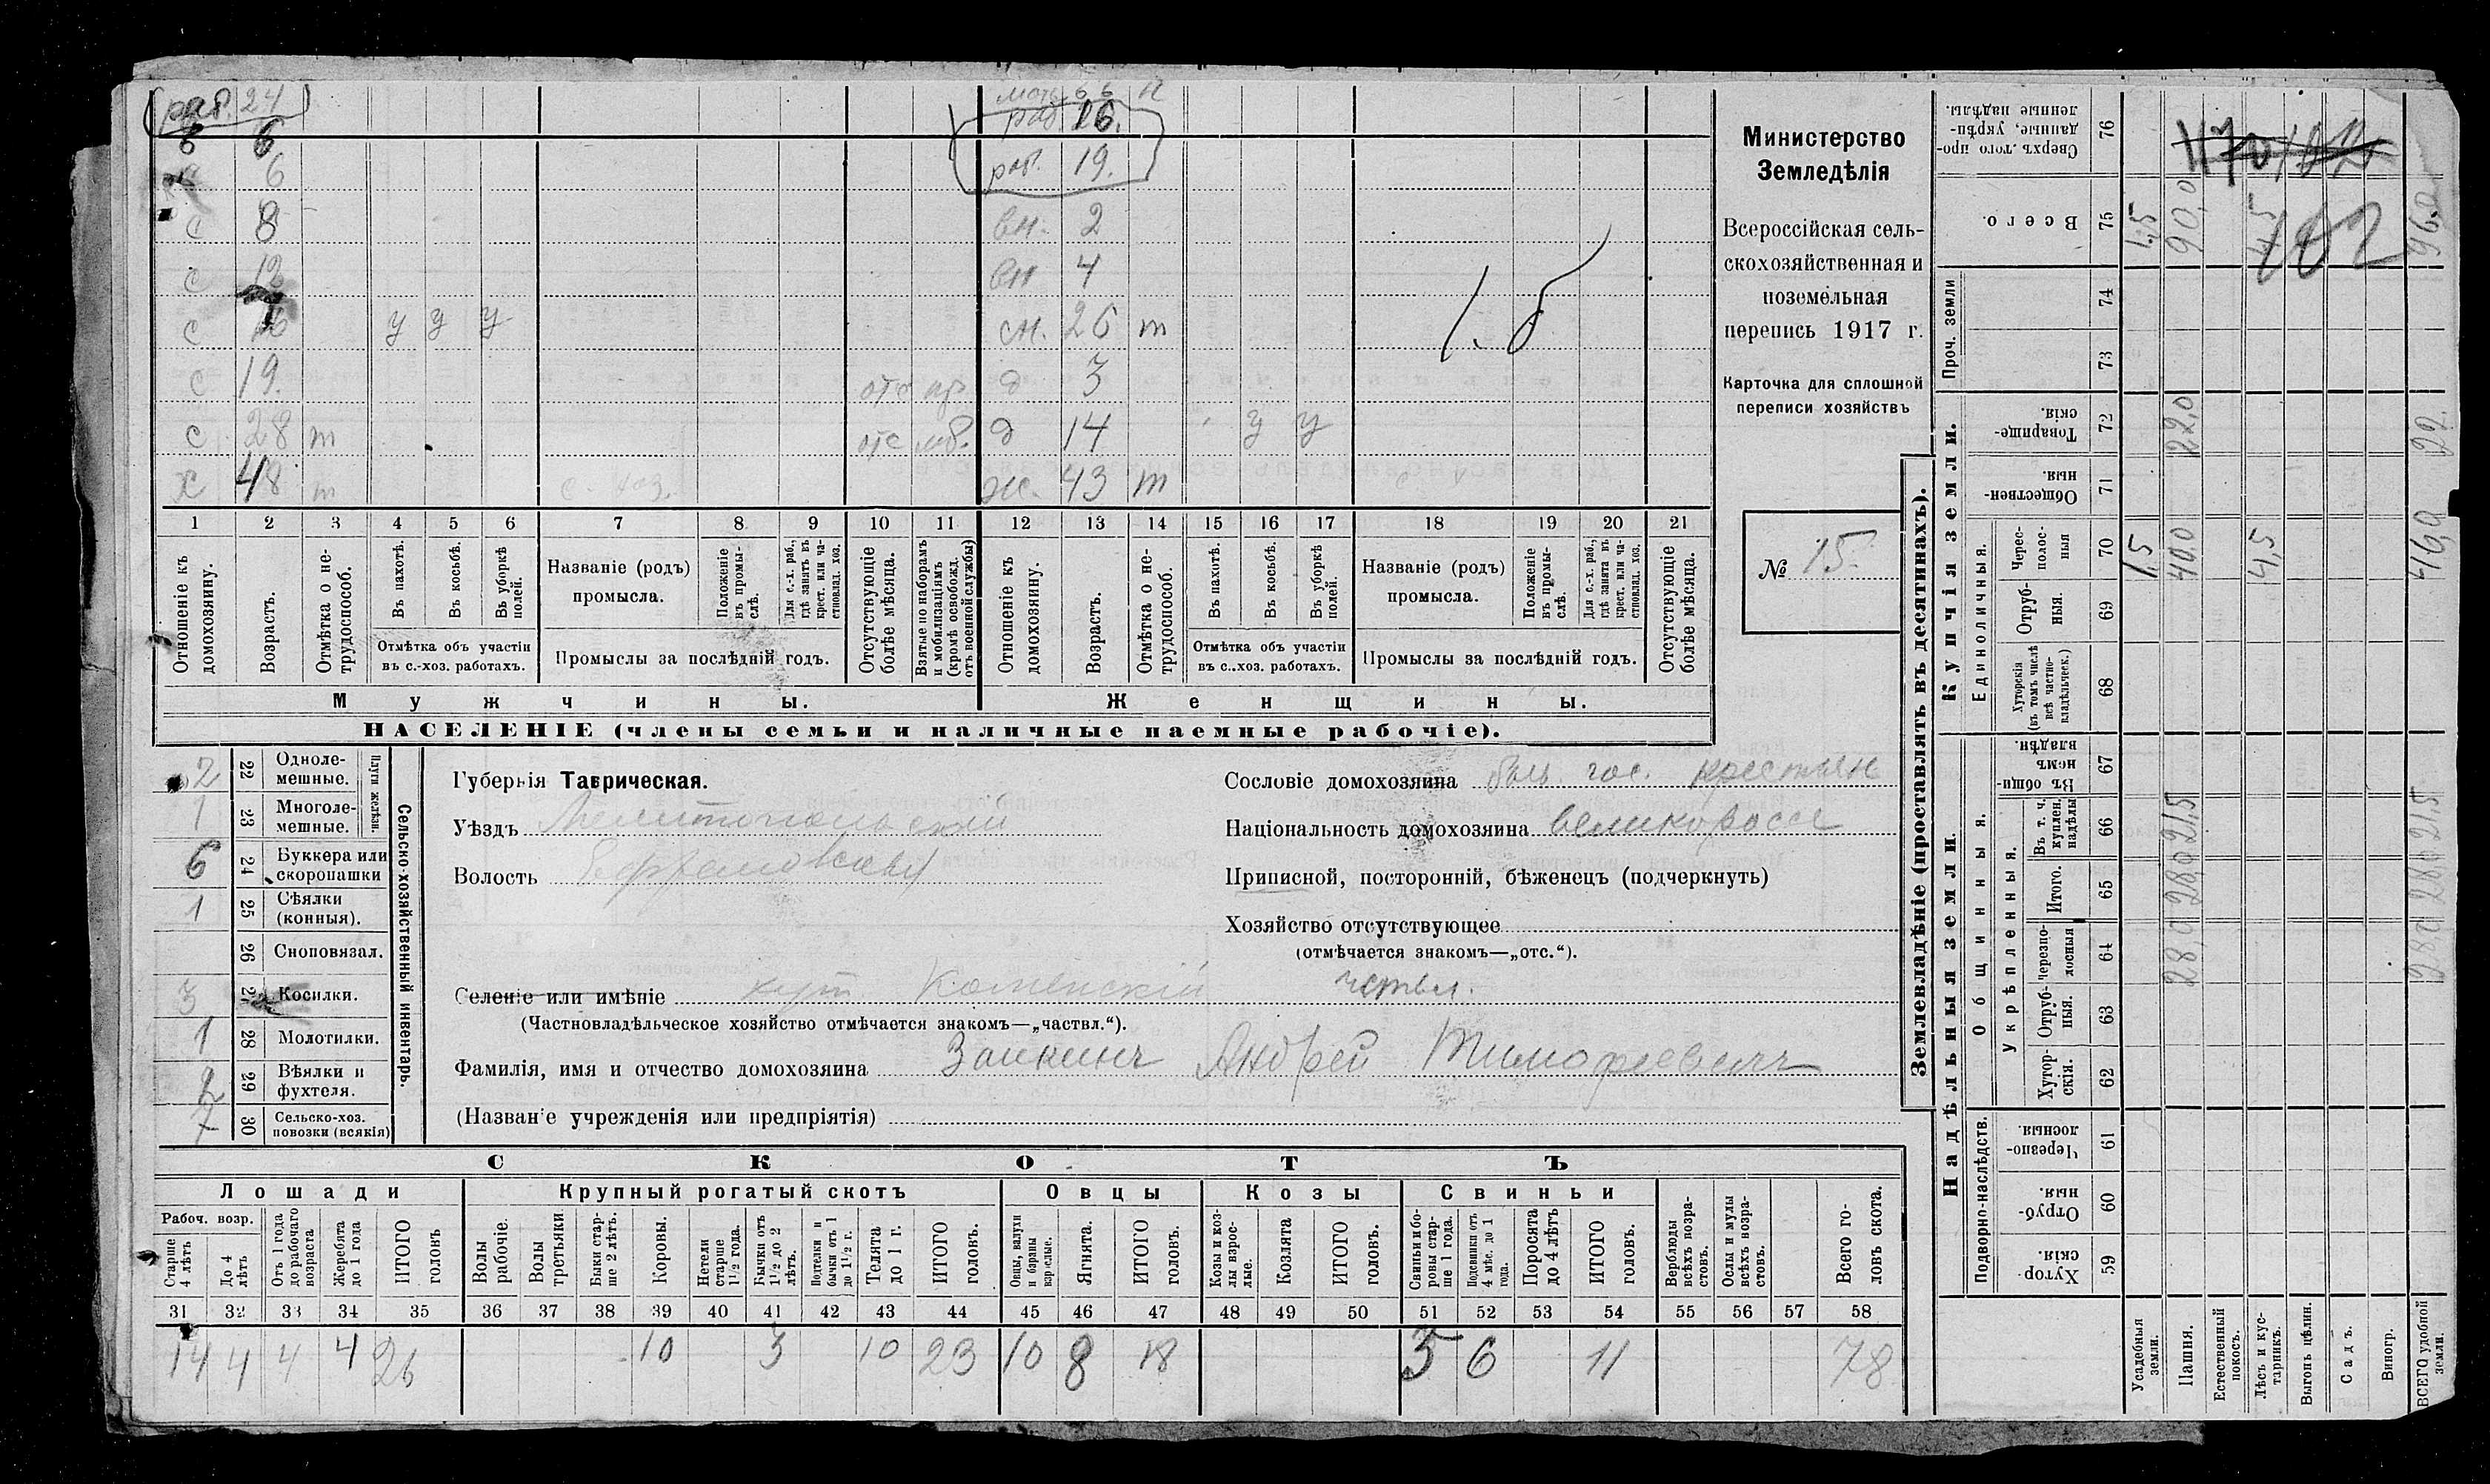 раб. 24
мать 66 н
раб. 16.
6 6
раб. 19.
6
с 8 вн. 2
с 12 вн 4
с у у у сн. 26 т 1. б
с 19. отс д 3
с 28 т отс моб. д 14 у у
х 48 т с. хоз. ж. 43 т
1 2 3 4 5 6 7 8 9 10 11 12 13 14 15 16 17 18 19 20 21
Отношеніе къ домохозяину.
Возрастъ.
Отмѣтка о нетрудоспособ.
Въ пахотѣ.
Въ косьбѣ.
Въ уборкѣ полей.
Отмѣтка объ участіи
въ с.-хоз. работахъ.
Названіе (родъ)
промысла.
Положеніе въ промыслѣ.
Для с.-х. раб., гдѣ занятъ въ крест. или частновлад. хоз.
Промыслы за послѣдній годъ.
Отсутствующіе болѣе мѣсяца.
Взятые по наборамъ и мобилизаціямъ (кромѣ освобожд. отъ военной службы)
Отношеніе къ домохозяину.
Возрастъ.
Отмѣтка о нетрудоспособ.
Въ пахотѣ.
Въ косьбѣ.
Въ уборкѣ полей.
Отмѣтка объ участіи
въ с.-хоз. работахъ.
Названіе (родъ)
промысла.
Положеніе въ промыслѣ.
Для с.-х. раб., гдѣ занята въ крест. или частновлад. хоз.
Промыслы за послѣдній годъ.
Отсутствующіе болѣе мѣсяца.
Мужчины. Женщины.
НАСЕЛЕНІЕ (члены семьи и наличные наемные рабочіе).
Министерство
Земледѣлія
Всероссійская сель-
скохозяйственная и
поземельная
перепись 1917 г.
Карточка для сплошной
переписи хозяйствъ
№ 15.
2 22 Одноле-
мешные.
1 23 Многоле-
мешные.
Плуги желѣзн.
6 24 Буккера или
скоропашки
1 25 Сѣялки
(конныя).
26 Сноповязал.
3 27 Косилки.
1 28 Молотилки.
2 29 Вѣялки и
фухтеля.
7 30 Сельско-хоз.
повозки (всякія)
Сельско-хозяйственный инвентарь.
Губернія Таврическая.
Уѣздъ Мелитопольскій
Волость Ефремовская
Селеніе или имѣніе хут Каменскій чствл.
(Частновладѣльческое хозяйство отмѣчается знакомъ—„частвл.“).
Фамилія, имя и отчество домохозяина Заикинъ Андрей Тимофеевичъ
(Названіе учрежденія или предпріятія)
Сословіе домохозяина быв. гос. крестьян
Національность домохозяина великороссъ
Приписной, посторонній, бѣженецъ (подчеркнуть)
Хозяйство отсутствующее
(отмѣчается знакомъ—„отс.“).
СКОТЪ
Лошади Крупный рогатый скотъ Овцы Козы Свиньи
Рабоч. возр.
Старше 4 лѣтъ
До 4 лѣтъ
Отъ 1 года до рабочаго возраста
Жеребята до 1 года
ИТОГО головъ
Волы рабочіе.
Волы третьяки
Быки старше 2 лѣтъ.
Коровы.
Нетели старше 1 1/2 года.
Бычки отъ 1 1/2 до 2 лѣтъ.
Подтелки и бычки отъ 1 до 1 1/2 г.
Телята до 1 г.
ИТОГО головъ.
Овцы, валухи и бараны взрослые.
Ягнята.
ИТОГО головъ.
Козы и козлы взрослые.
Козлята
ИТОГО головъ.
Свиньи и боровы старше 1 года.
Подсвинки отъ 4 мѣс. до 1 года.
Поросята до 4 лѣтъ
ИТОГО головъ.
Верблюды всѣхъ возрастовъ.
Ослы и мулы всѣхъ возрастовъ.
Всего головъ скота.
31 32 33 34 35 36 37 38 39 40 41 42 43 44 45 46 47 48 49 50 51 52 53 54 55 56 57 58
14 4 4 4 26 10 3 10 23 10 8 18 5 6 11 78
Землевладѣніе (проставлять въ десятинахъ).
Надѣльныя земли. Купчія земли.
Подворно-наслѣдств.
Общинныя.
Укрѣпленныя.
Единоличныя.
Проч. земли
Хуторскія. 59
Отрубныя. 60
Черезполосныя. 61
Хуторскія. 62
Отрубныя. 63
Черезполосныя 64
Итого. 65
Въ т. ч. куплен. надѣлы 66
Въ общиннемъ владѣн. 67
Хуторскія (въ томъ числѣ всѣ частновладѣльческ.) 68
Отрубныя. 69
Чересполосныя 70
Общественныя. 71
Товарищескія. 72
73
74
Всего. 75
Сверхъ того проданные, укрѣпленные надѣлы. 76
Усадебныя земли. 1,5 1,5
Пашня. 28,0 28,0 21,5 40,0 22,0 90,0
Естественный покосъ.
Лѣсъ и кустарникъ. 4,5 4,5
Выгонъ цѣлин.
Садъ.
Виногр.
ВСЕГО удобной земли. 28,0 28,0 21,5 46,0 22. 96,0
102